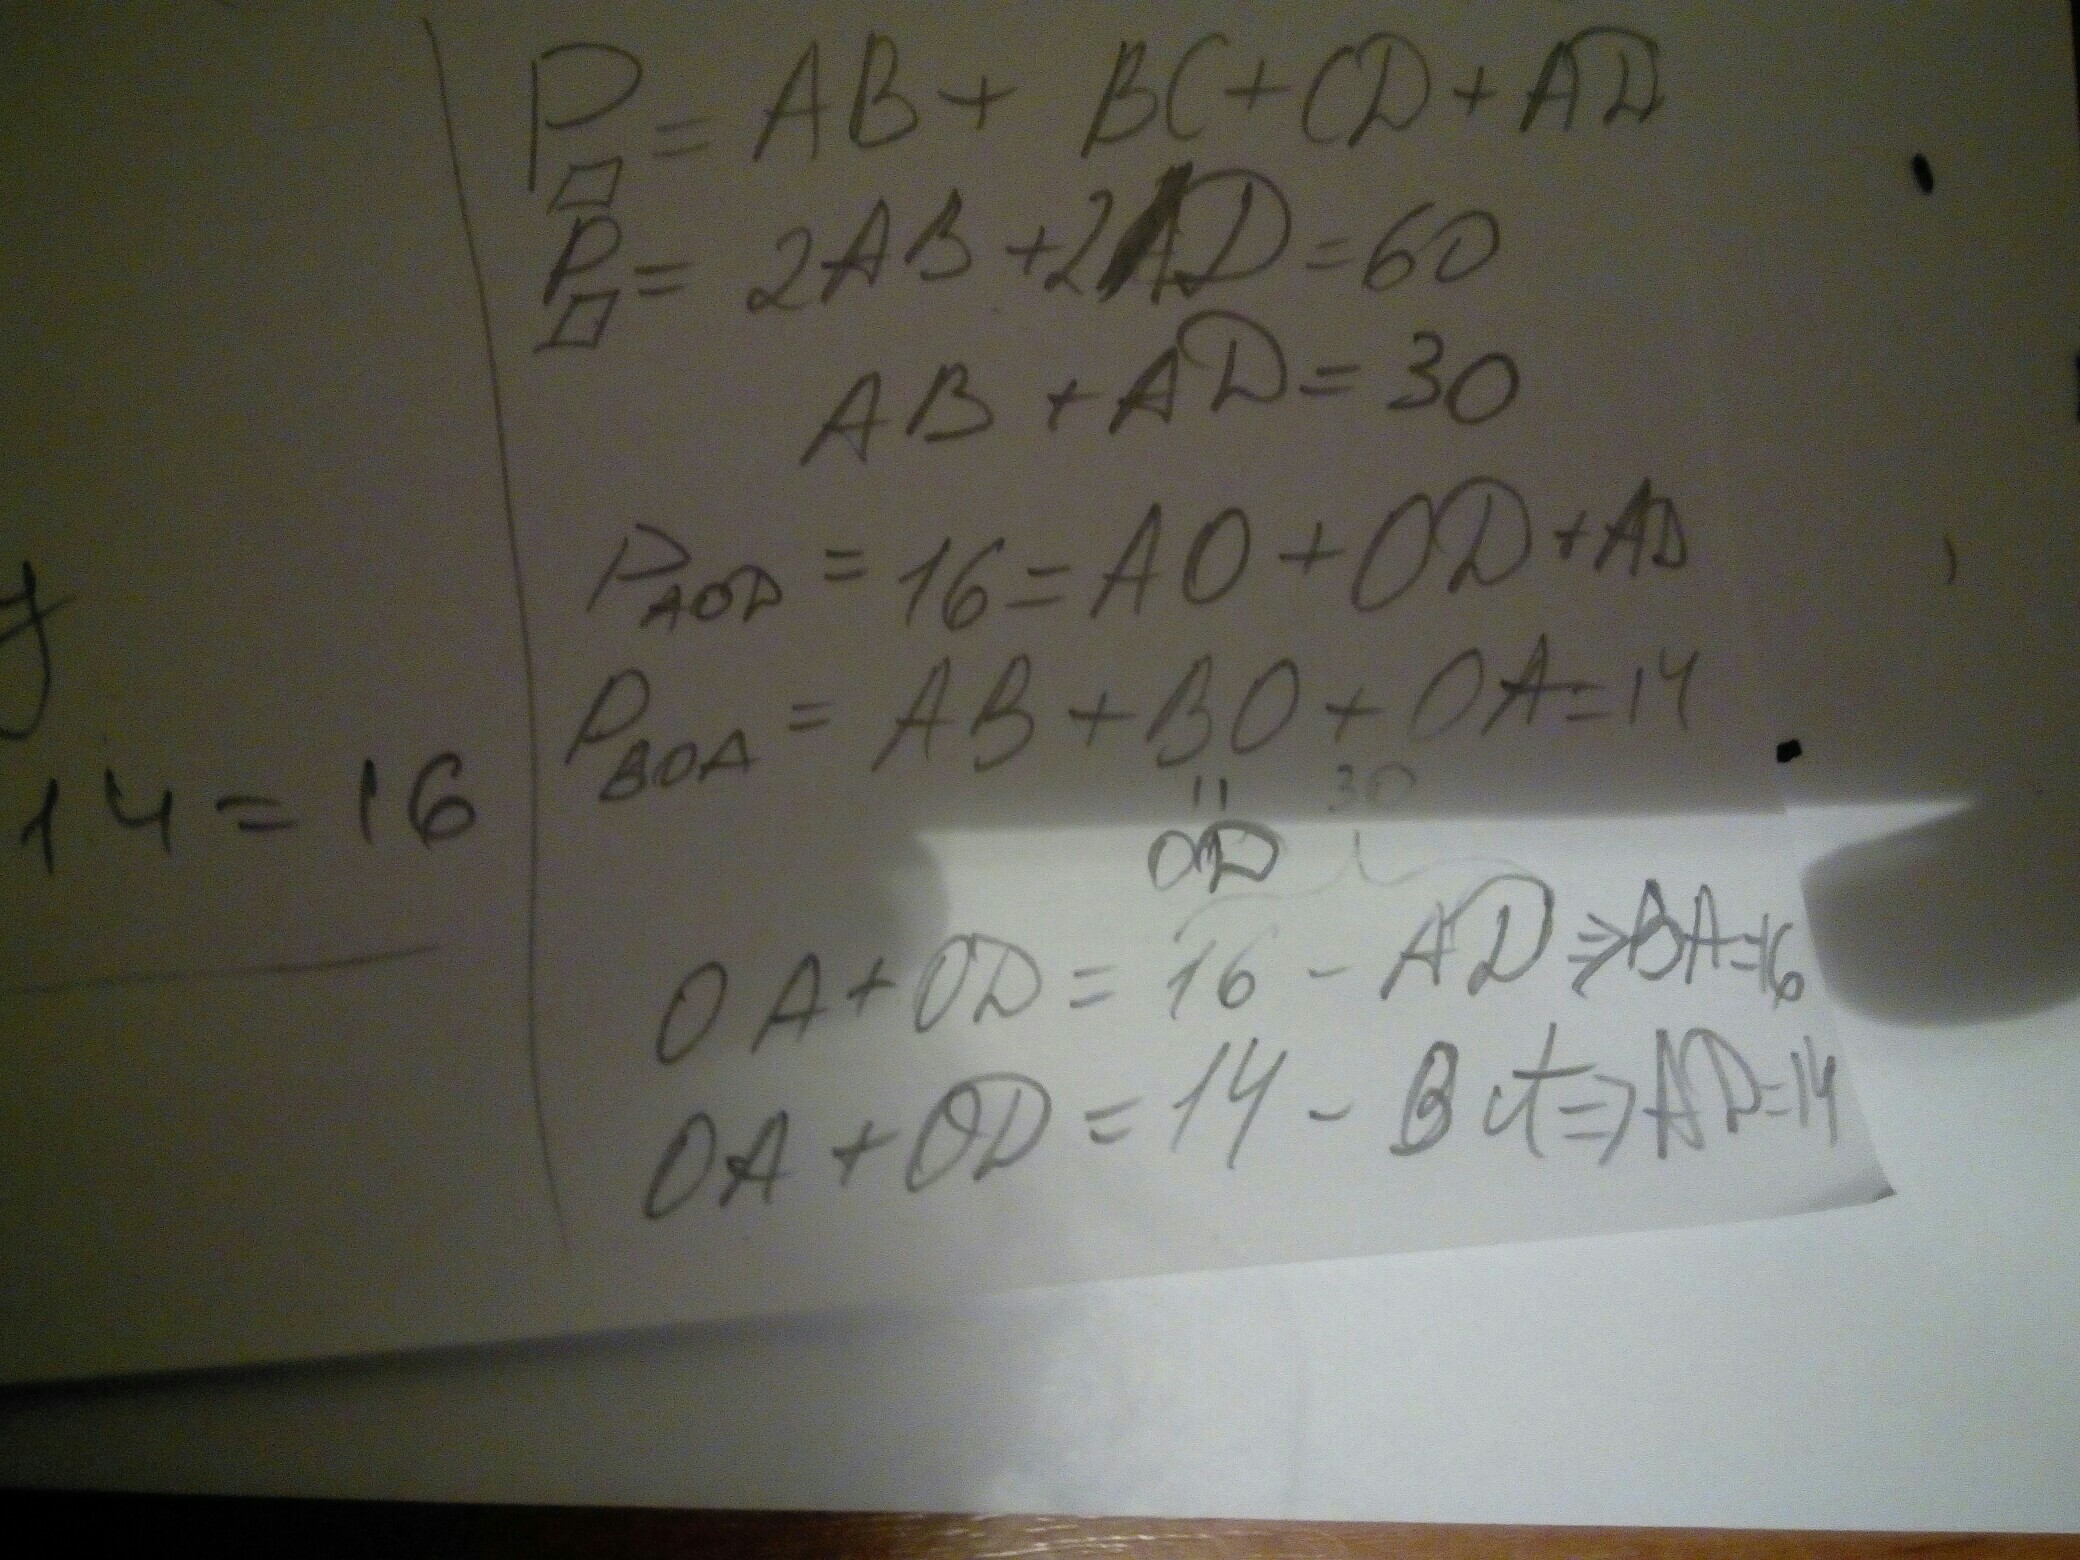 P▱ = AB + BC + CD + AD
P▱ = 2AB + 2AD = 60
AB + AD = 30
P AOD = 16 = AO + OD + AD
P BOA = AB + BO + OA = 14
14 = 16
" 30
OD
OA + OD = 16 - AD ⇒ BA = 16
OA + OD = 14 - B ⇒ AD = 14